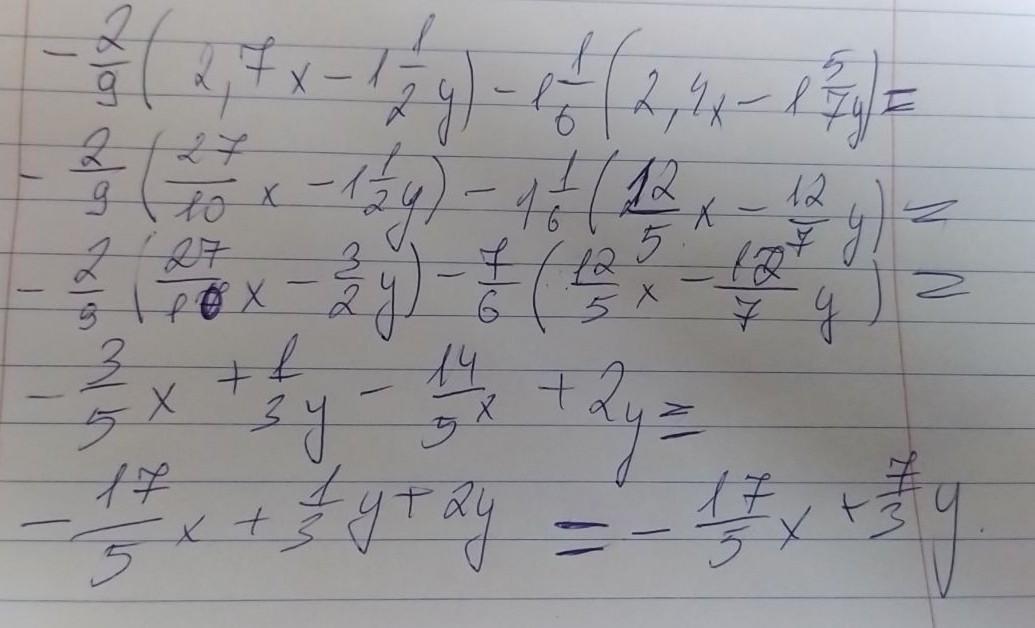 - 2/9 ( 2,7x - 1 1/2 y) - 1 1/6 ( 2,4x - 1 5/7 y) =
- 2/9 ( 27/10 x - 1 1/2 y) - 1 1/6 ( 12/5 x - 12/7 y) =
- 2/9 ( 27/10 x - 3/2 y) - 7/6 ( 12/5 x - 12/7 y ) =
- 3/5 x + 1/3 y - 14/5 x + 2y =
- 17/5 x + 1/3 y + 2y = - 17/5 x + 7/3 y.